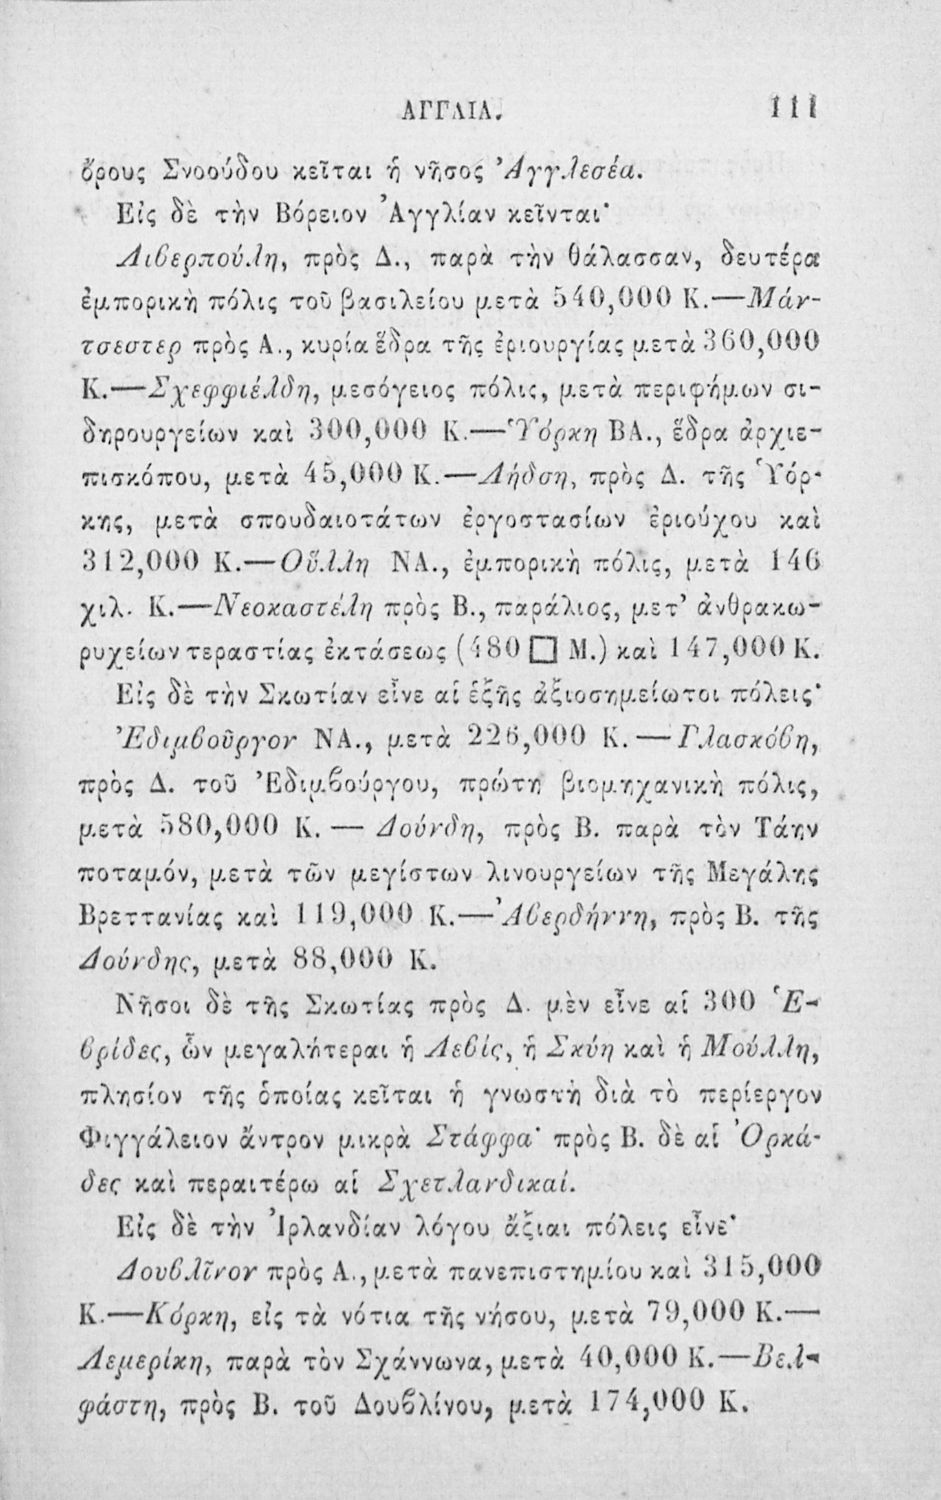 ΑΓΓΛΙΑ. 111
ὄρους Σνοούδου κεῖται ἡ νῆσος Ἀγγλεσέα.
Εἰς δὲ τὴν Βόρειον Ἀγγλίαν κεῖνται·
Λιβερπούλη, πρὸς Δ., παρὰ τὴν θάλασσαν, δευτέρα
ἐμπορικὴ πόλις τοῦ βασιλείου μετὰ 540,000 Κ.—Μάν-
τσεστερ πρὸς Α., κυρία ἕδρα τῆς ἐριουργίας μετὰ 360,000
Κ.—Σχεφφιέλδη, μεσόγειος πόλις, μετὰ περιφήμων σι-
δηρουργείων καὶ 300,000 Κ.—Ὑόρκη ΒΑ., ἕδρα ἀρχιε-
πισκόπου, μετὰ 45,000 Κ.—Λήδση, πρὸς Δ. τῆς Ὑόρ-
κης, μετὰ σπουδαιοτάτων ἐργοστασίων ἐριούχου καὶ
312,000 Κ.—Οὔλλη ΝΑ., ἐμπορικὴ πόλις, μετὰ 146
χιλ. Κ.—Νεοκαστέλη πρὸς Β., παράλιος, μετ’ ἀνθρακω-
ρυχείων τεραστίας ἐκτάσεως (480 □ Μ.) καὶ 147,000 Κ.
Εἰς δὲ τὴν Σκωτίαν εἶνε αἱ ἑξῆς ἀξιοσημείωτοι πόλεις·
Ἐδιμβοῦργον ΝΑ., μετὰ 226,000 Κ.—Γλασκόβη,
πρὸς Δ. τοῦ Ἐδιμβούργου, πρώτη βιομηχανικὴ πόλις,
μετὰ 580,000 Κ.—Δούνδη, πρὸς Β. παρὰ τὸν Τάην
ποταμόν, μετὰ τῶν μεγίστων λινουργείων τῆς Μεγάλης
Βρεττανίας καὶ 119,000 Κ.—Ἀβερδήννη, πρὸς Β. τῆς
Δούνδης, μετὰ 88,000 Κ.
Νῆσοι δὲ τῆς Σκωτίας πρὸς Δ. μὲν εἶνε αἱ 300 Ἑ-
βρίδες, ὧν μεγαλήτεραι ἡ Λεβίς, ἡ Σκύη καὶ ἡ Μούλλη,
πλησίον τῆς ὁποίας κεῖται ἡ γνωστὴ διὰ τὸ περίεργον
Φιγγάλειον ἄντρον μικρὰ Στάφφα· πρὸς Β. δὲ αἱ Ὀρκά-
δες καὶ περαιτέρω αἱ Σχετλανδικαί.
Εἰς δὲ τὴν Ἰρλανδίαν λόγου ἄξιαι πόλεις εἶνε·
Δουβλῖνον πρὸς Α., μετὰ πανεπιστημίου καὶ 315,000
Κ.—Κόρκη, εἰς τὰ νότια τῆς νήσου, μετὰ 79,000 Κ.—
Λεμερίκη, παρὰ τὸν Σχάννωνα, μετὰ 40,000 Κ.—Βελ-
φάστη, πρὸς Β. τοῦ Δουβλίνου, μετὰ 174,000 Κ.